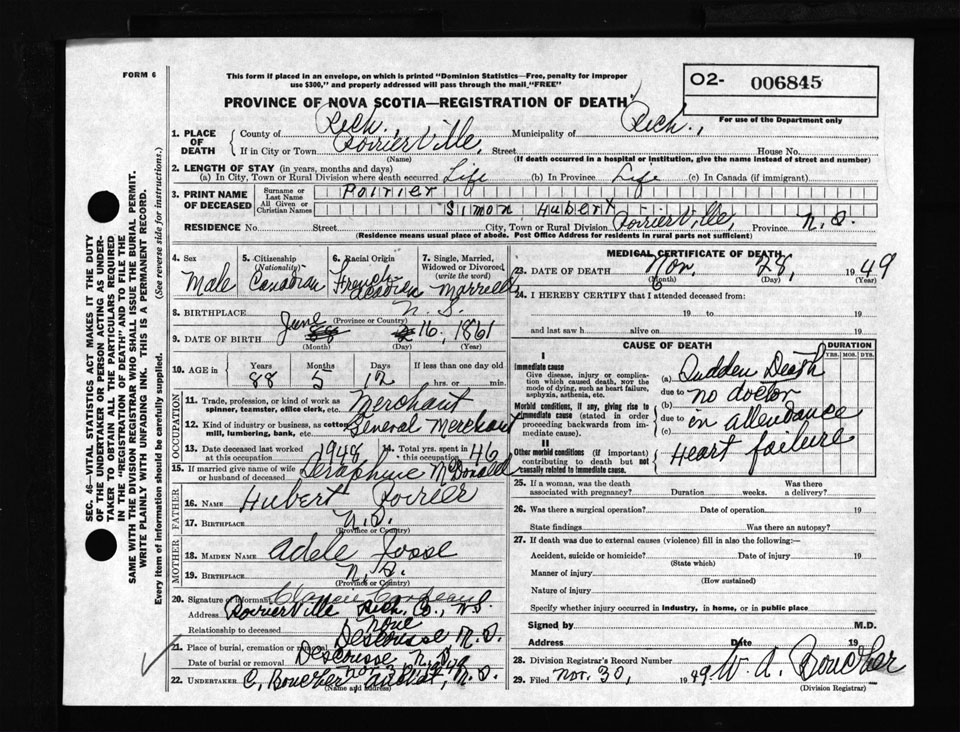 FORM 6
This form if placed in an envelope, on which is printed "Dominion Statistics—Free, penalty for improper
use $300," and properly addressed will pass through the mail "FREE"
O2- 006845
For use of the Department only
PROVINCE OF NOVA SCOTIA—REGISTRATION OF DEATH
1. PLACE OF DEATH
County of Rich., Municipality of Rich.,
If in City or Town PoirierVille, Street House No.
(Name) (If death occurred in a hospital or institution, give the name instead of street and number)
2. LENGTH OF STAY (in years, months and days)
(a) In City, Town or Rural Division where death occurred Life (b) In Province Life (c) In Canada (if immigrant)
3. PRINT NAME OF DECEASED
Surname or Last Name Poirier
All Given or Christian Names Simon Hubert
RESIDENCE No. Street City, Town or Rural Division PoirierVille, Province N. S.
(Residence means usual place of abode. Post Office Address for residents in rural parts not sufficient)
4. Sex 5. Citizenship (Nationality) 6. Racial Origin 7. Single, Married, Widowed or Divorced (write the word)
Male Canadian French Acadian Married
8. BIRTHPLACE N. S.
(Province or Country)
9. DATE OF BIRTH June 16, 1861
(Month) (Day) (Year)
10. AGE in Years Months Days If less than one day old
88 5 12 hrs. or min.
OCCUPATION
11. Trade, profession, or kind of work as spinner, teamster, office clerk, etc. Merchant
12. Kind of industry or business, as cotton mill, lumbering, bank, etc. General Merchant
13. Date deceased last worked at this occupation 1948 14. Total yrs. spent in this occupation 46
15. If married give name of wife or husband of deceased Seraphine McDonald
FATHER
16. NAME Hubert Poirier
17. BIRTHPLACE N. S.
(Province or Country)
MOTHER
18. MAIDEN NAME Adele Josse
19. BIRTHPLACE N. S.
(Province or Country)
20. Signature of informant
Address PoirierVille Rich. Co., N.S.
Relationship to deceased None
21. Place of burial, cremation or removal Descousse N. S.
Date of burial or removal Descousse N. S.
22. UNDERTAKER C. Boucher N. S.
(Name and address)
MEDICAL CERTIFICATE OF DEATH
23. DATE OF DEATH Nov. 28, 1949
(Month) (Day) (Year)
24. I HEREBY CERTIFY that I attended deceased from:
19 to 19
and last saw h alive on 19
CAUSE OF DEATH DURATION
YRS. MOS. DYS.
I
Immediate cause
Give disease, injury or complication which caused death, NOT the mode of dying, such as heart failure, asphyxia, asthenia, etc.
(a) Sudden Death
due to no doctor
Morbid conditions, if any, giving rise to immediate cause (stated in order proceeding backwards from immediate cause).
(b) due to in attendance
(c)
II
Other morbid conditions (if important) contributing to death but not causally related to immediate cause.
Heart failure
25. If a woman, was the death associated with pregnancy? Duration weeks. Was there a delivery?
26. Was there a surgical operation? Date of operation 19
State findings Was there an autopsy?
27. If death was due to external causes (violence) fill in also the following:—
Accident, suicide or homicide? Date of injury 19
(State which)
Manner of injury
(How sustained)
Nature of injury
Specify whether injury occurred in industry, in home, or in public place
Signed by M.D.
Address Date 19
28. Division Registrar's Record Number
29. Filed Nov. 30, 1949 W. A. Boucher
(Division Registrar)
SEC. 46—VITAL STATISTICS ACT MAKES IT THE DUTY
OF THE UNDERTAKER OR PERSON ACTING AS UNDERTAKER TO OBTAIN ALL THE PARTICULARS REQUIRED
IN THE "REGISTRATION OF DEATH" AND TO FILE THE
SAME WITH THE DIVISION REGISTRAR WHO SHALL ISSUE THE BURIAL PERMIT.
WRITE PLAINLY WITH UNFADING INK. THIS IS A PERMANENT RECORD.
Every item of information should be carefully supplied. (See reverse side for instructions.)